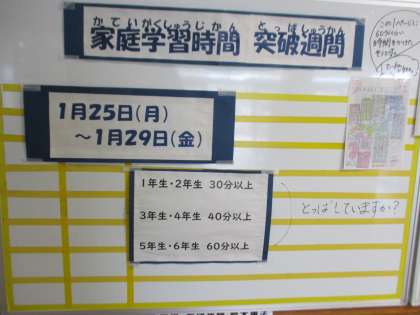 かていがくしゅうじかん とっぱしゅうかん
家庭学習時間 突破週間
1月25日(月)
～1月29日(金)
1年生・2年生 30分以上
3年生・4年生 40分以上
5年生・6年生 60分以上
とっぱしていますか?